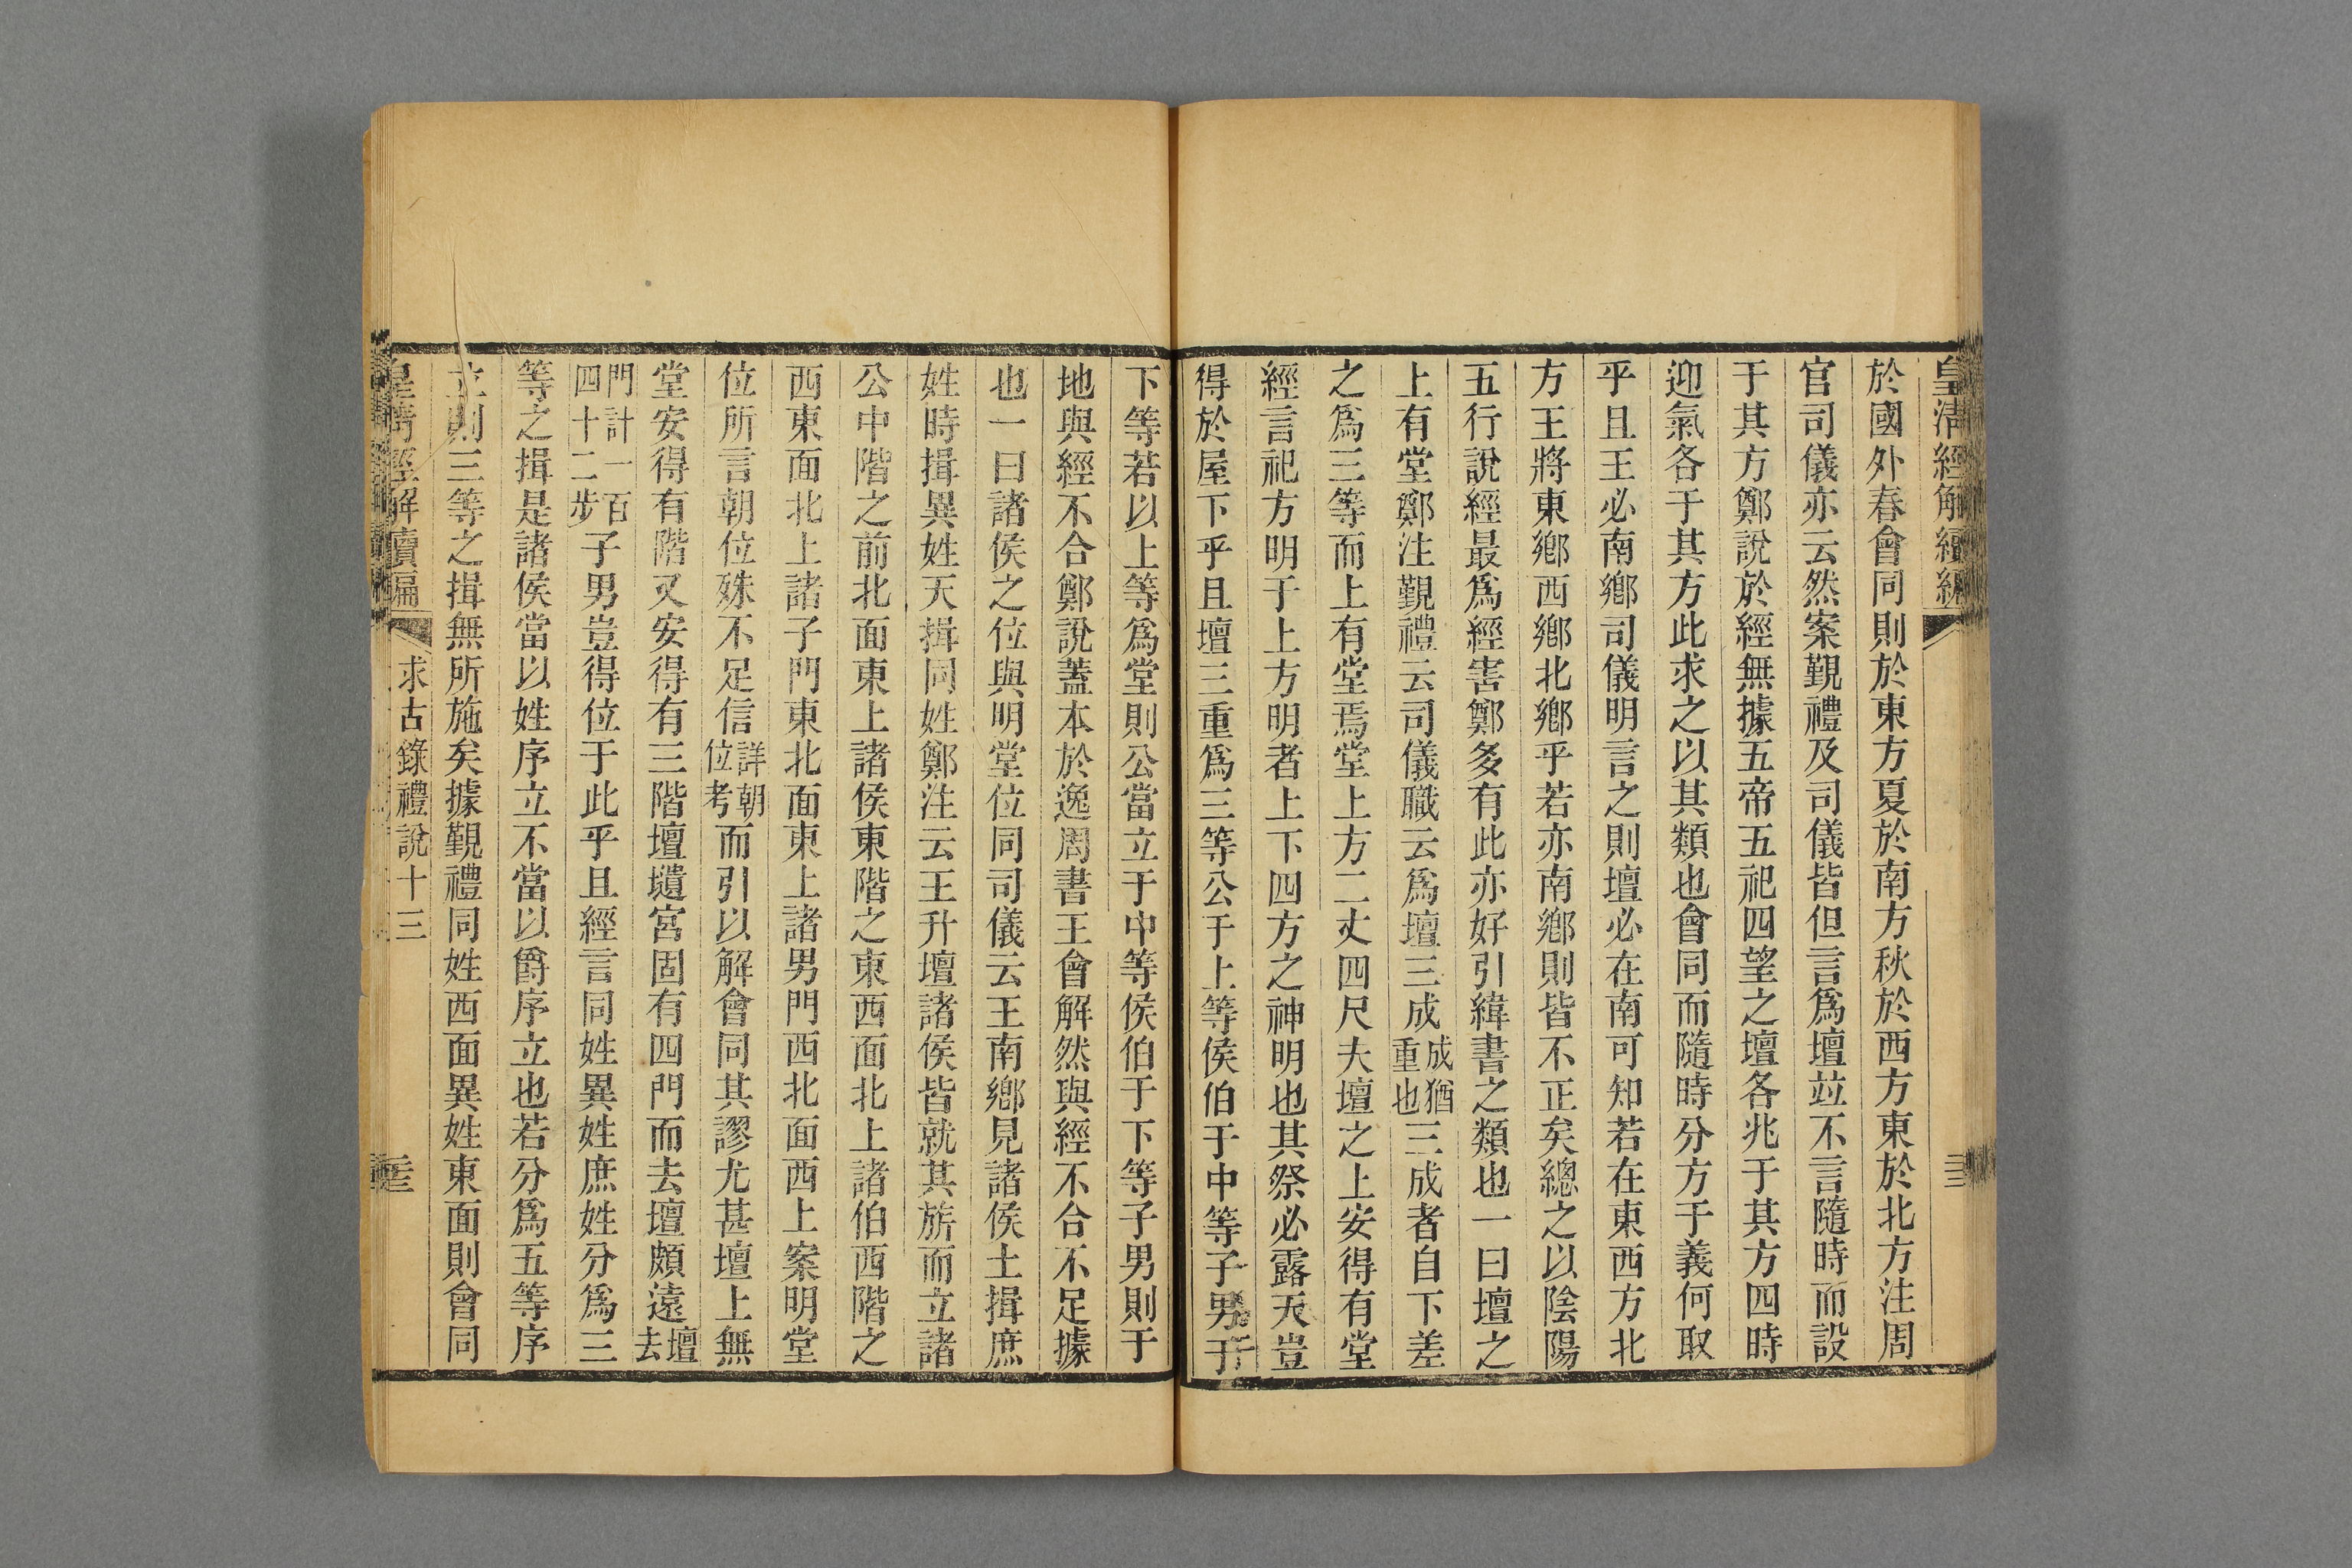 皇淸經解續編
於國外春會同則於東方夏於南方秋於西方東於北方注周
官司儀亦云然案覲禮及司儀皆但言爲壇竝不言隨時而設
于其方鄭說於經無據五帝五祀四望之壇各兆于其方四時
迎氣各于其方此求之以其類也會同而隨時分方于義何取
乎且王必南鄉司儀明言之則壇必在南可知若在東西方北
方王將東鄉西鄉北鄉乎若亦南鄉則皆不正矣總之以陰陽
五行說經最爲經害鄭多有此亦好引緯書之類也一曰壇之
上有堂鄭注覲禮云司儀職云爲壇三成成猶重也三成者自下差
之爲三等而上有堂焉堂上方二丈四尺夫壇之上安得有堂
經言祀方明于上方明者上下四方之神明也其祭必露天豈
得於屋下乎且壇三重爲三等公于上等侯伯于中等子男于
下等若以上等爲堂則公當立于中等侯伯于下等子男則于
地與經不合鄭說蓋本於逸周書王會解然與經不合不足據
也一曰諸侯之位與明堂位同司儀云王南鄉見諸侯土揖庶
姓時揖異姓天揖同姓鄭注云王升壇諸侯皆就其旂而立諸
公中階之前北面東上諸侯東階之東西面北上諸伯西階之
西東面北上諸子門東北面東上諸男門西北面西上案明堂
位所言朝位殊不足信詳朝位考而引以解會同其謬尤甚壇上無
堂安得有階又安得有三階壇壝宮固有四門而去壇頗遠壇去
門計一百四十二步子男豈得位于此乎且經言同姓異姓庶姓分爲三
等之揖是諸侯當以姓序立不當以爵序立也若分爲五等序
立則三等之揖無所施矣據覲禮同姓西面異姓東面則會同
皇淸經解續編
求古錄禮說十三